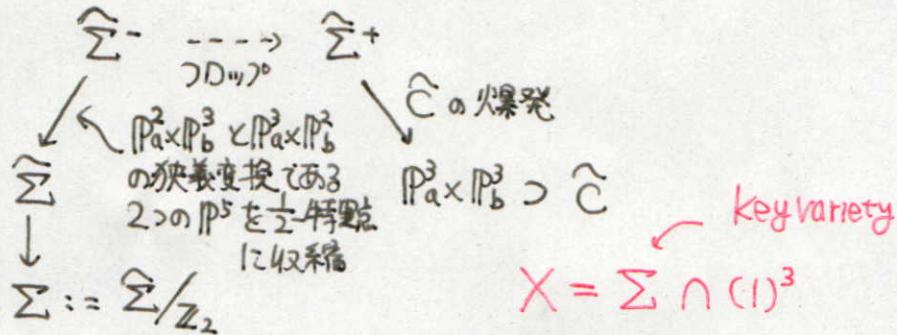 Σ̂⁻ ----> Σ̂⁺
フロップ
Ĉ の爆発
P²ₐ×P³_b と P³ₐ×P²_b
の狭義変換である
2つの P⁵ を 1/2-特異点
に収縮
Σ̂
P³ₐ×P³_b ⊃ Ĉ
key variety
Σ := Σ̂/Z₂
X = Σ ∩ (1)³